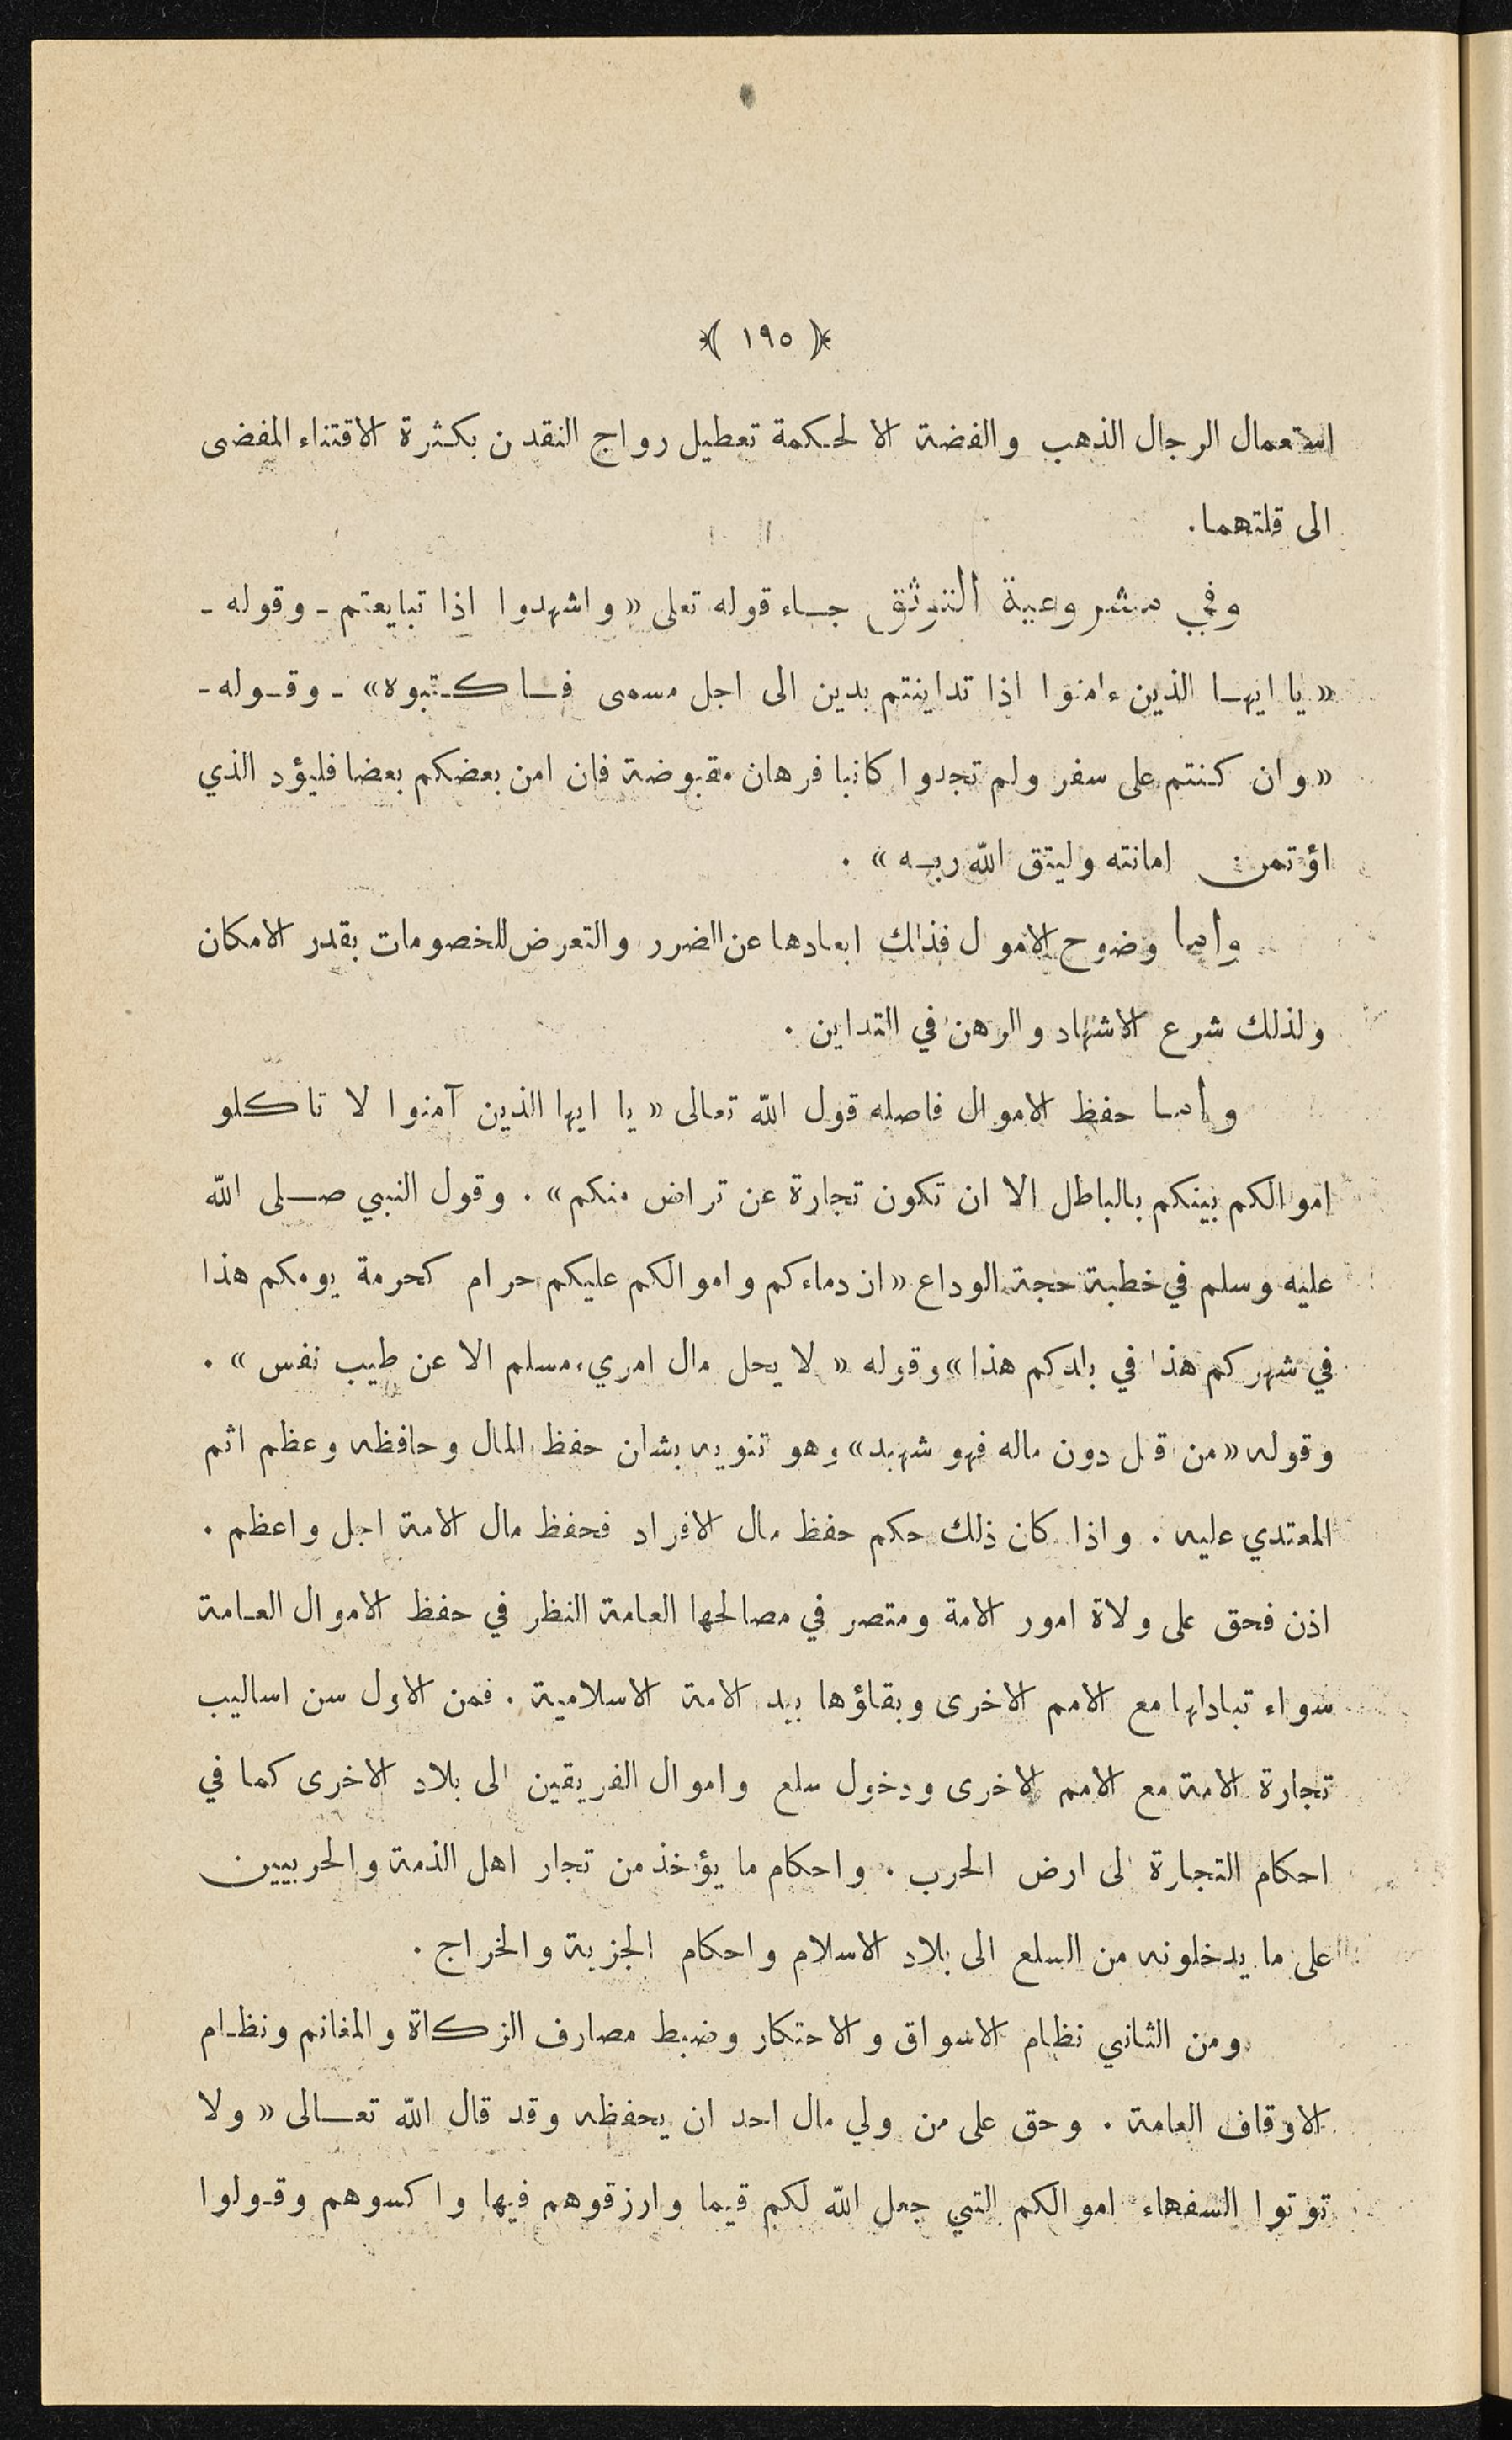 ﴿ ١٩٥ ﴾
استعمال الرجال الذهب والفضة الا لحكمة تعطيل رواج النقدن بكثرة الاقتناء المفضى
الى قلتهما .
وفي مشروعية التوثق جاء قوله تعلى « واشهدوا اذا تبايعتم - وقوله -
« يا ايها الذين ءامنوا اذا تداينتم بدين الى اجل مسمى فاكتبوه » - وقوله -
« وان كنتم على سفر ولم تجدوا كاتبا فرهان مقبوضة فان امن بعضكم بعضا فليؤد الذي
اؤتمن امانته وليتق الله ربه » .
واما وضوح الاموال فذلك ابعادها عن الضرر والتعرض للخصومات بقدر الامكان
ولذلك شرع الاشهاد والرهن في التداين .
واما حفظ الاموال فاصله قول الله تعالى « يا ايها الذين آمنوا لا تاكلو
اموالكم بينكم بالباطل الا ان تكون تجارة عن تراض منكم » . وقول النبي صلى الله
عليه وسلم في خطبة حجة الوداع « ان دماءكم واموالكم عليكم حرام كحرمة يومكم هذا
في شهركم هذا في بلدكم هذا » وقوله « لا يحل مال امريء مسلم الا عن طيب نفس » .
وقوله « من قتل دون ماله فهو شهيد » وهو تنويه بشان حفظ المال وحافظه وعظم اثم
المعتدي عليه . واذا كان ذلك حكم حفظ مال الافراد فحفظ مال الامة اجل واعظم .
اذن فحق على ولاة امور الامة ومتصر في مصالحها العامة النظر في حفظ الاموال العامة
سواء تبادلها مع الامم الاخرى وبقاؤها بيد الامة الاسلامية . فمن الاول سن اساليب
تجارة الامة مع الامم الاخرى ودخول سلع واموال الفريقين الى بلاد الاخرى كما في
احكام التجارة الى ارض الحرب . واحكام ما يؤخذ من تجار اهل الذمة والحربيين
على ما يدخلونه من السلع الى بلاد الاسلام واحكام الجزية والخراج .
ومن الثاني نظام الاسواق والاحتكار وضبط مصارف الزكاة والمغانم ونظام
الاوقاف العامة . وحق على من ولي مال احد ان يحفظه وقد قال الله تعالى « ولا
توتوا السفهاء اموالكم التي جعل الله لكم قيما وارزقوهم فيها واكسوهم وقولوا